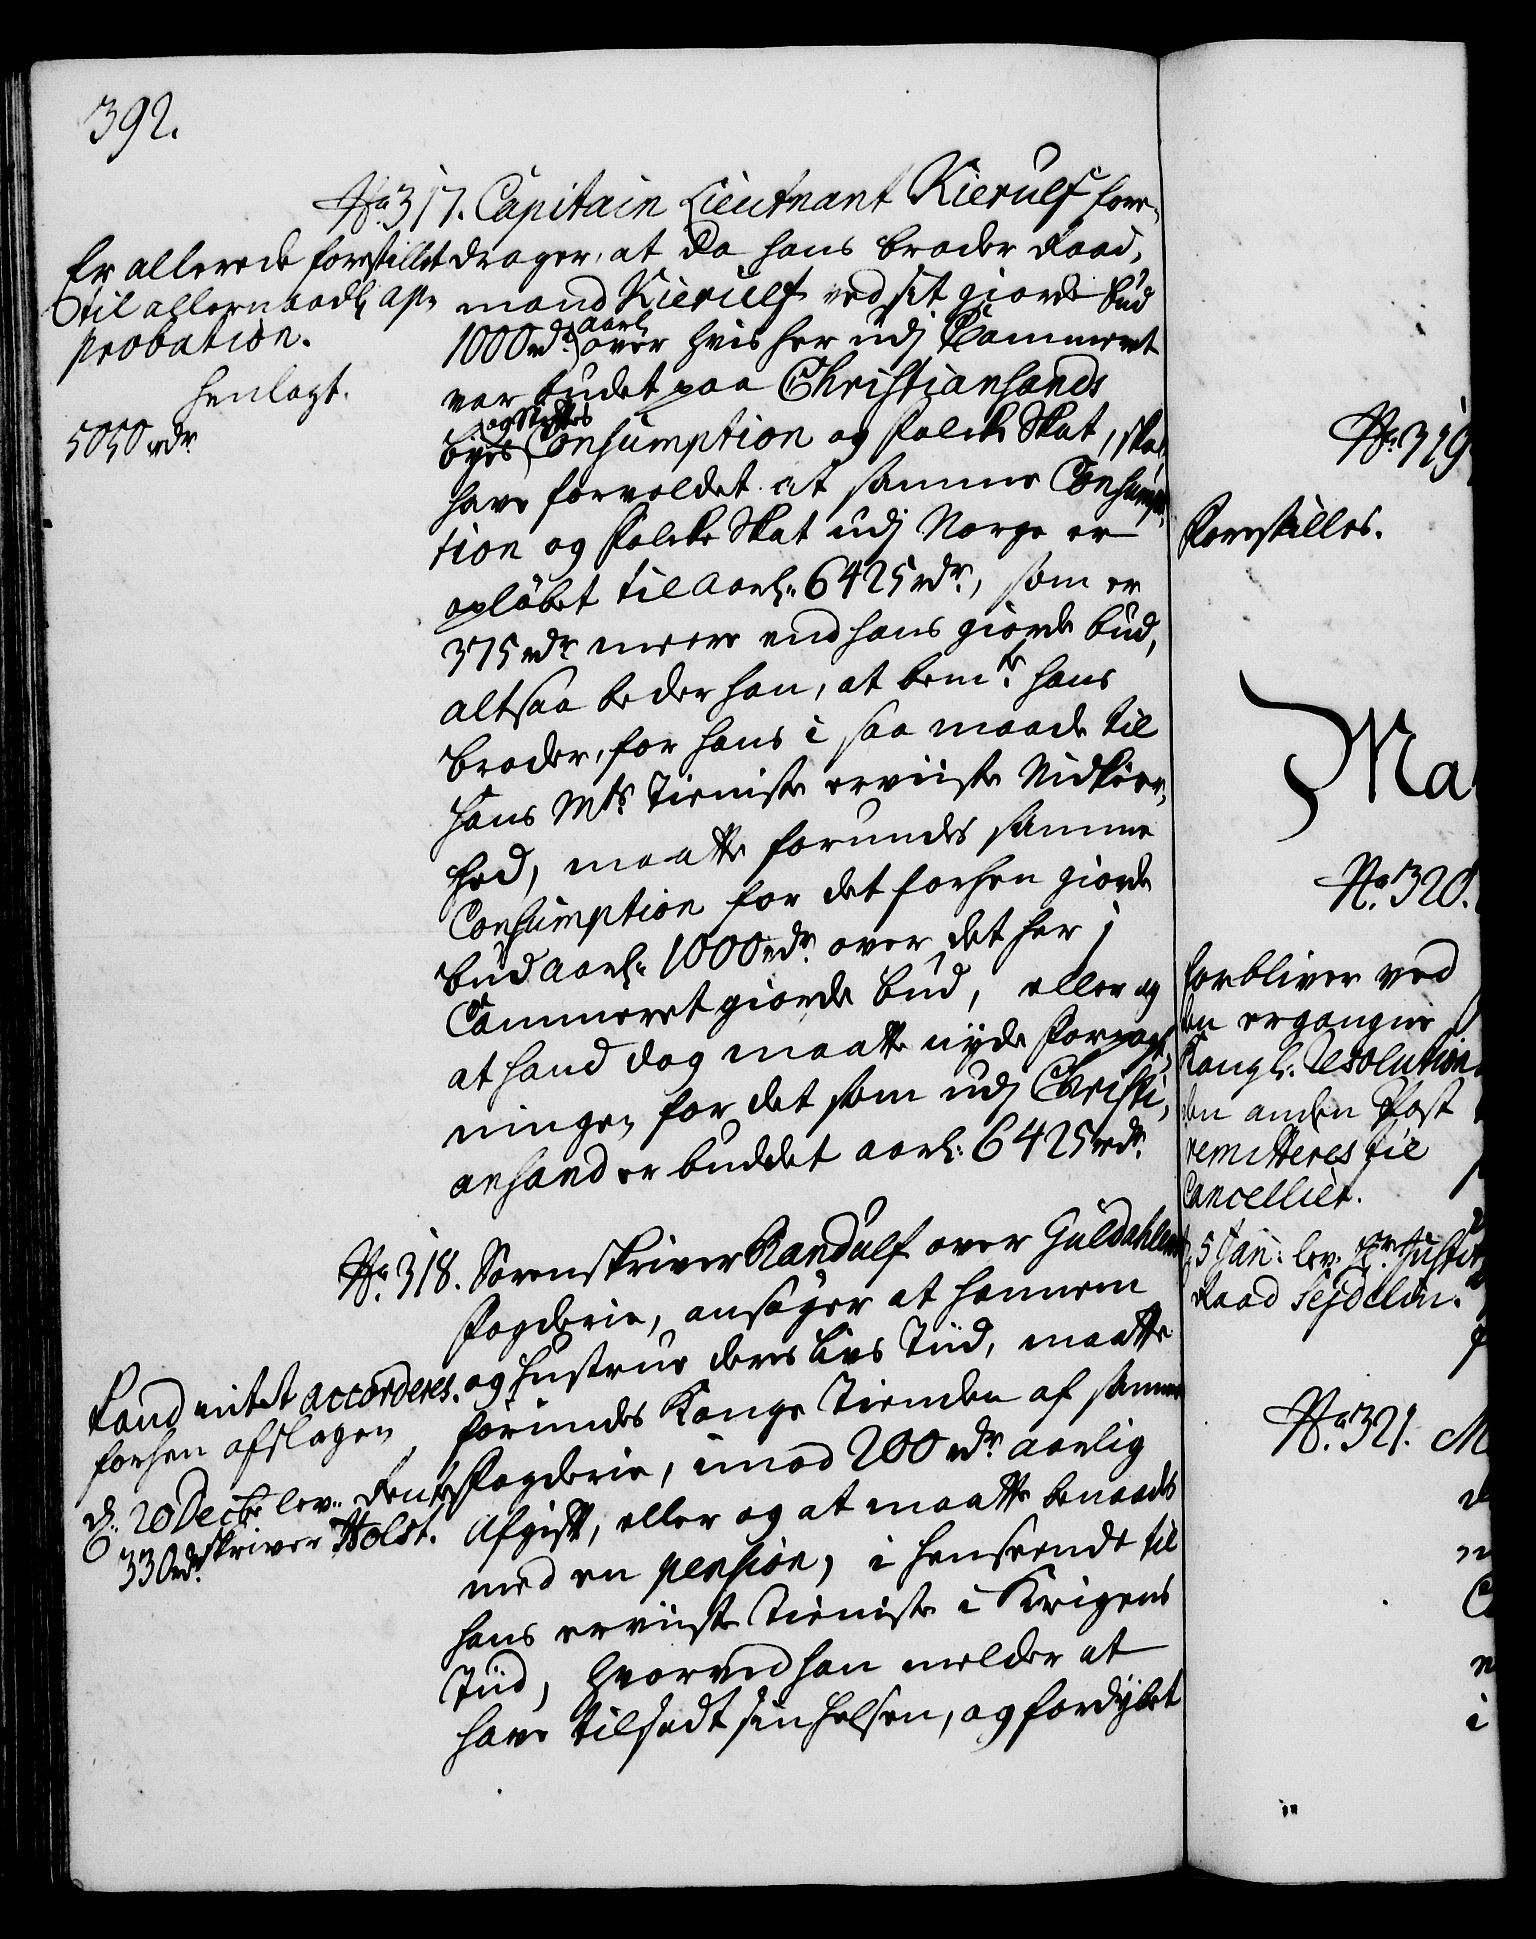 392.
No. 317. Capitain Lieutnant Kierulf fore-
drager, at da hans broder Raad,
mand Kierulf ved sit giorde bud
1000 rdr. aarl over hvis her udj Cammeret
var budet paa Christiansands
byes og Stifts Consumption og Folcke Skat, skal
have forvoldet at samme Consump,
tion og Folcke Skat udj Norge er
opløbet til aarl. 6425 rdr., som er
375 rdr. meere end hans giorde bud,
altsaa beder han, at bemte. hans
broder, for hans i saa maade til
Hans Mts. Tieniste erviiste Nidkier,
hed, maatte forundes samme
Consumption for det forhen giorde
bud aarl. 1000 rdr. over det her j
Cammeret giorde bud, eller og
at hand dog maatte nyde Forpagt,
ningen for det som udj Christi,
ansand er buddet aarl: 6425 rdr.
Er allerede forestillet
til allernaadl. ap-
probation.
henlagt.
5050 rdr
No. 318. Sorenskriver Randulf over Guldahlens
Fogderie, ansøger at hannem
og Hustrue deres Livs Tiid, maatte
forundes Konge Tienden af samme
Fogderie, imod 200 rdr. aarlig
Afgift, eller og at maatte benaades
med en pension, i henseende til
hans erviiste Tieniste i Krigens
Tiid, hvorved han melder at
have tilsadt sin Helsen, og fordybet
Kand intet accorderes.
forhen afslagen
d. 20 Decbr. lev. Rente
skriver Holst.
330 rdr.
No. 319
Forestilles.
Ma
No. 320.
forbliver ved
den ergangne
Kongl. Resolution
den anden Post
remitteres til
Cancelliet.
5 Jan: lev. Hr. Justit
Raad Sejdelin.
No. 321. M